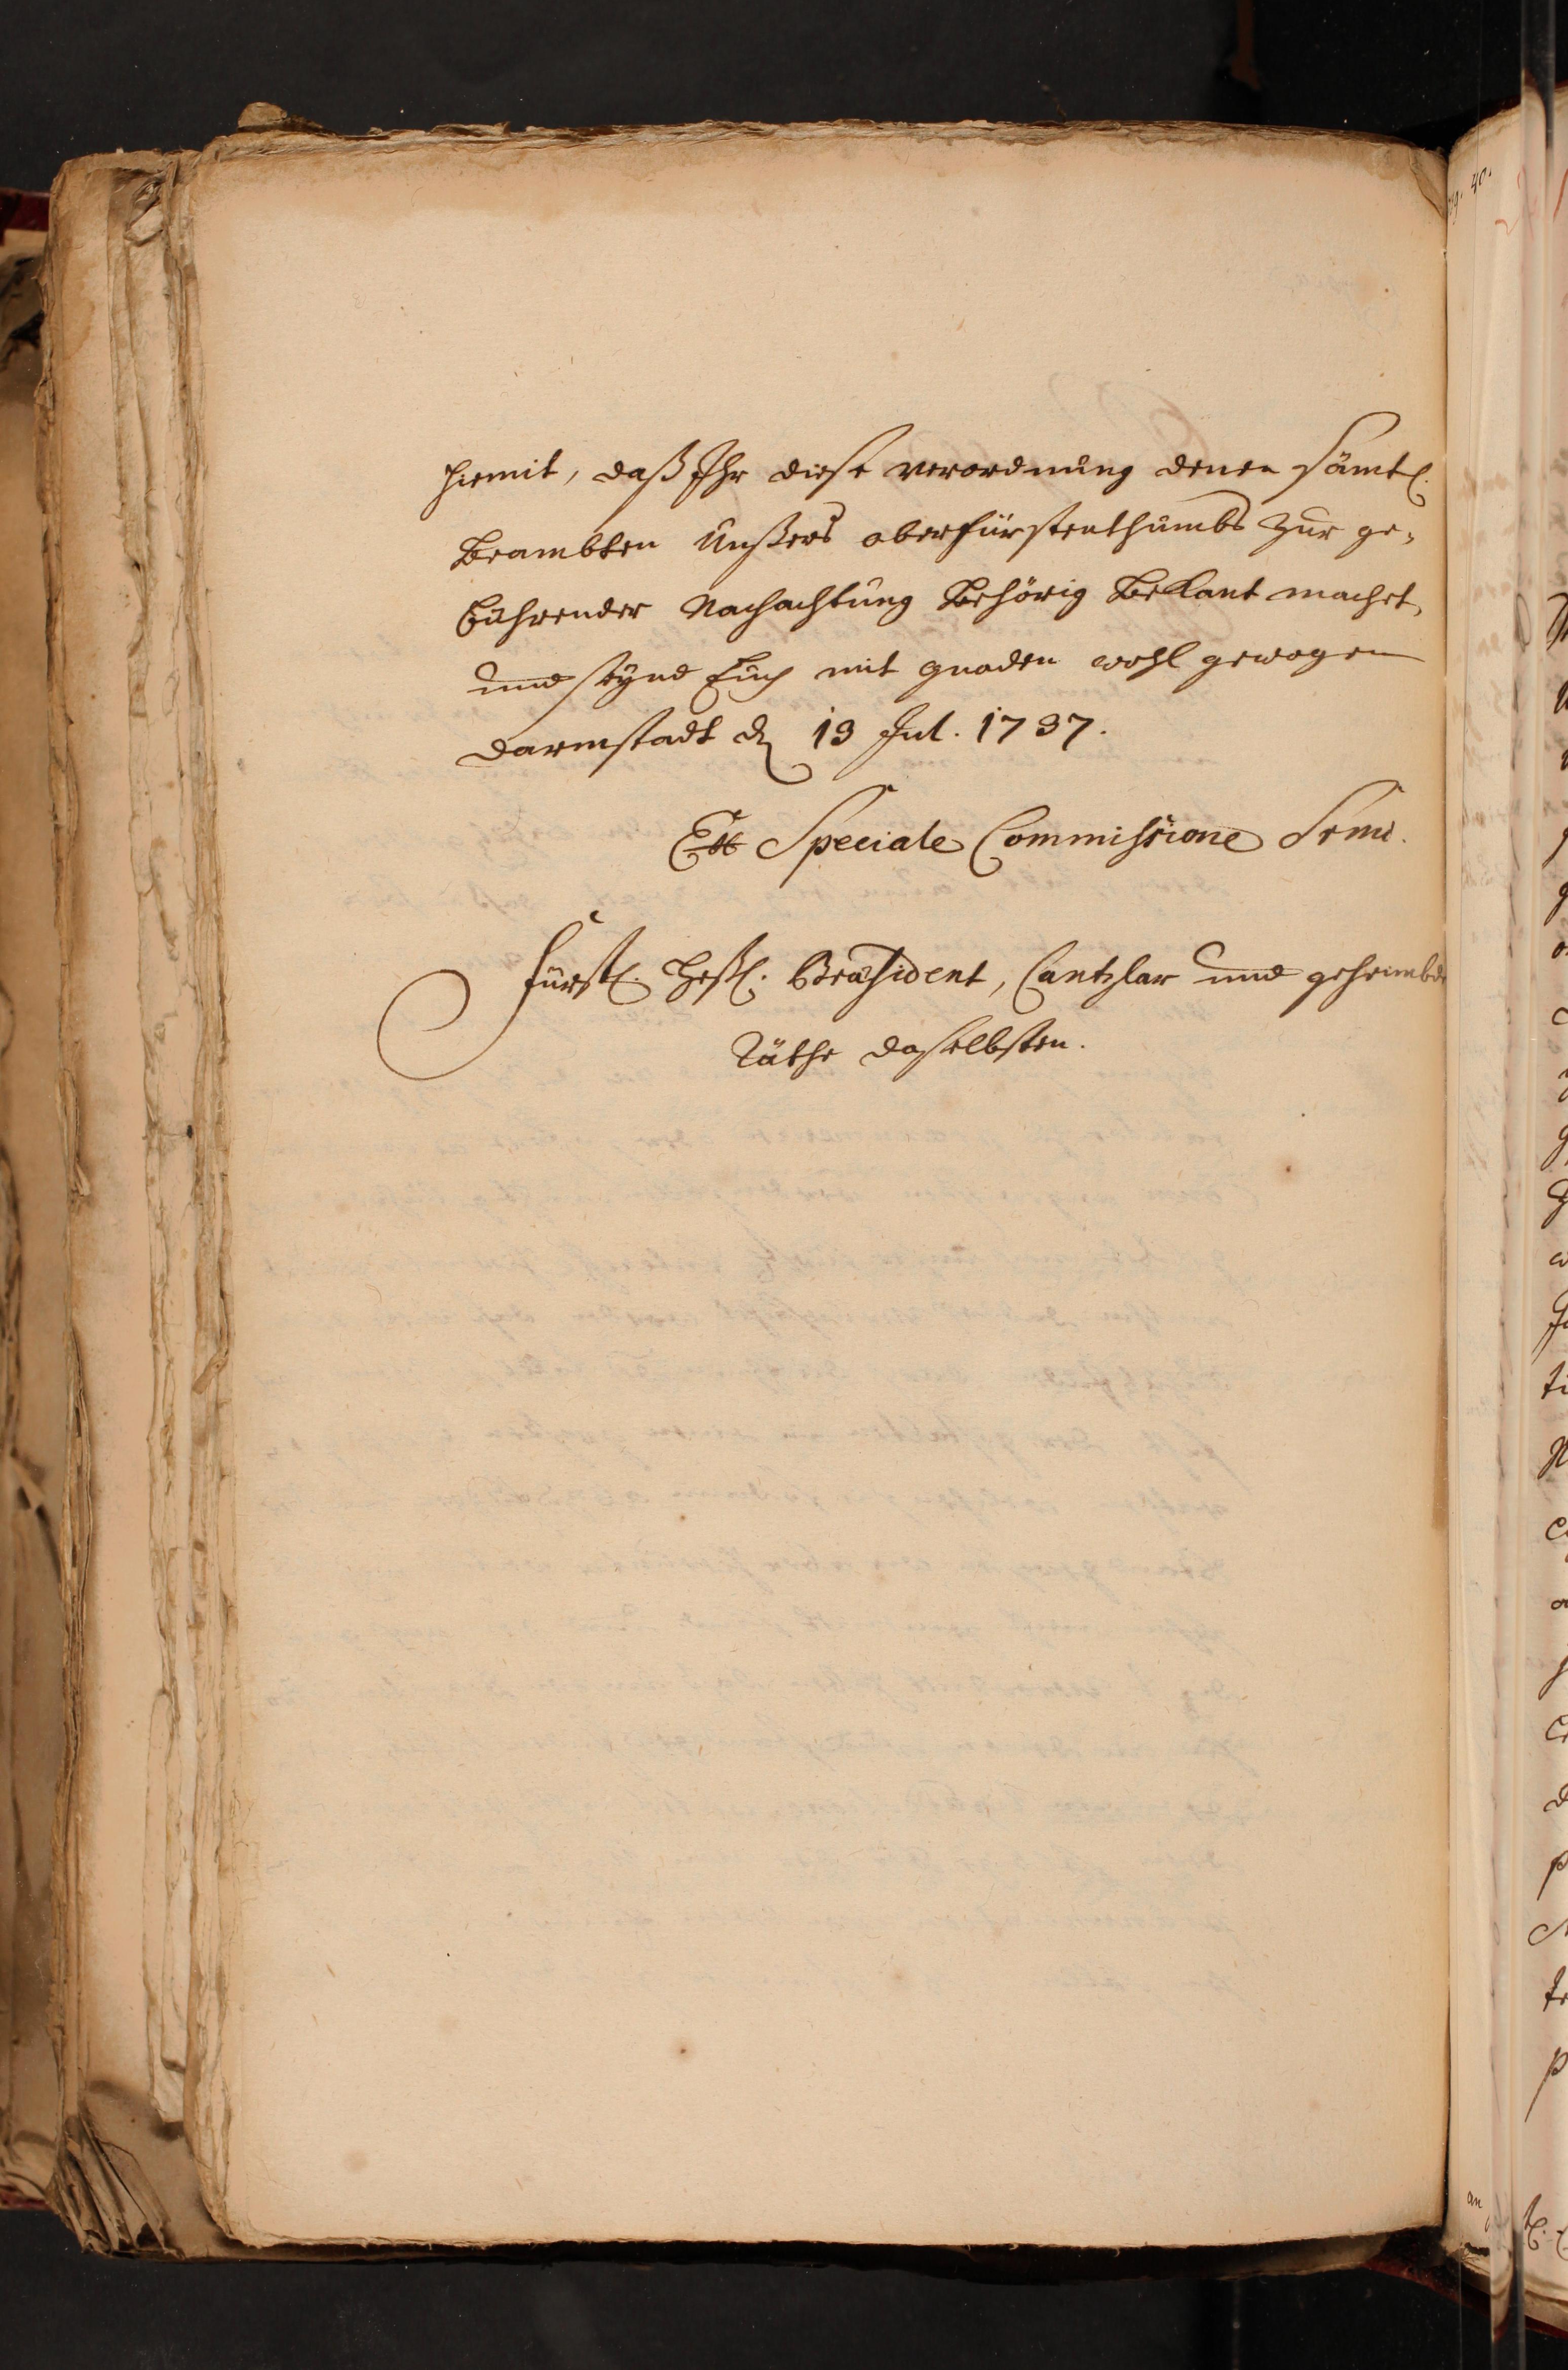 hiemit, daß Ihr diese verordnung denen sämtl.
Beambten Unßers oberfürstenthumbs zur ge-
bührender Nachachtung behörig bekant machet,
und seynd Euch mit gnaden wohl gewogen
Darmstadt d. 13 Jul. 1737.
Ex Speciale Commissione Srmi.
Fürstl. Heßl. Præsident, Cantzlar und geheimbde
Räthe daselbsten.